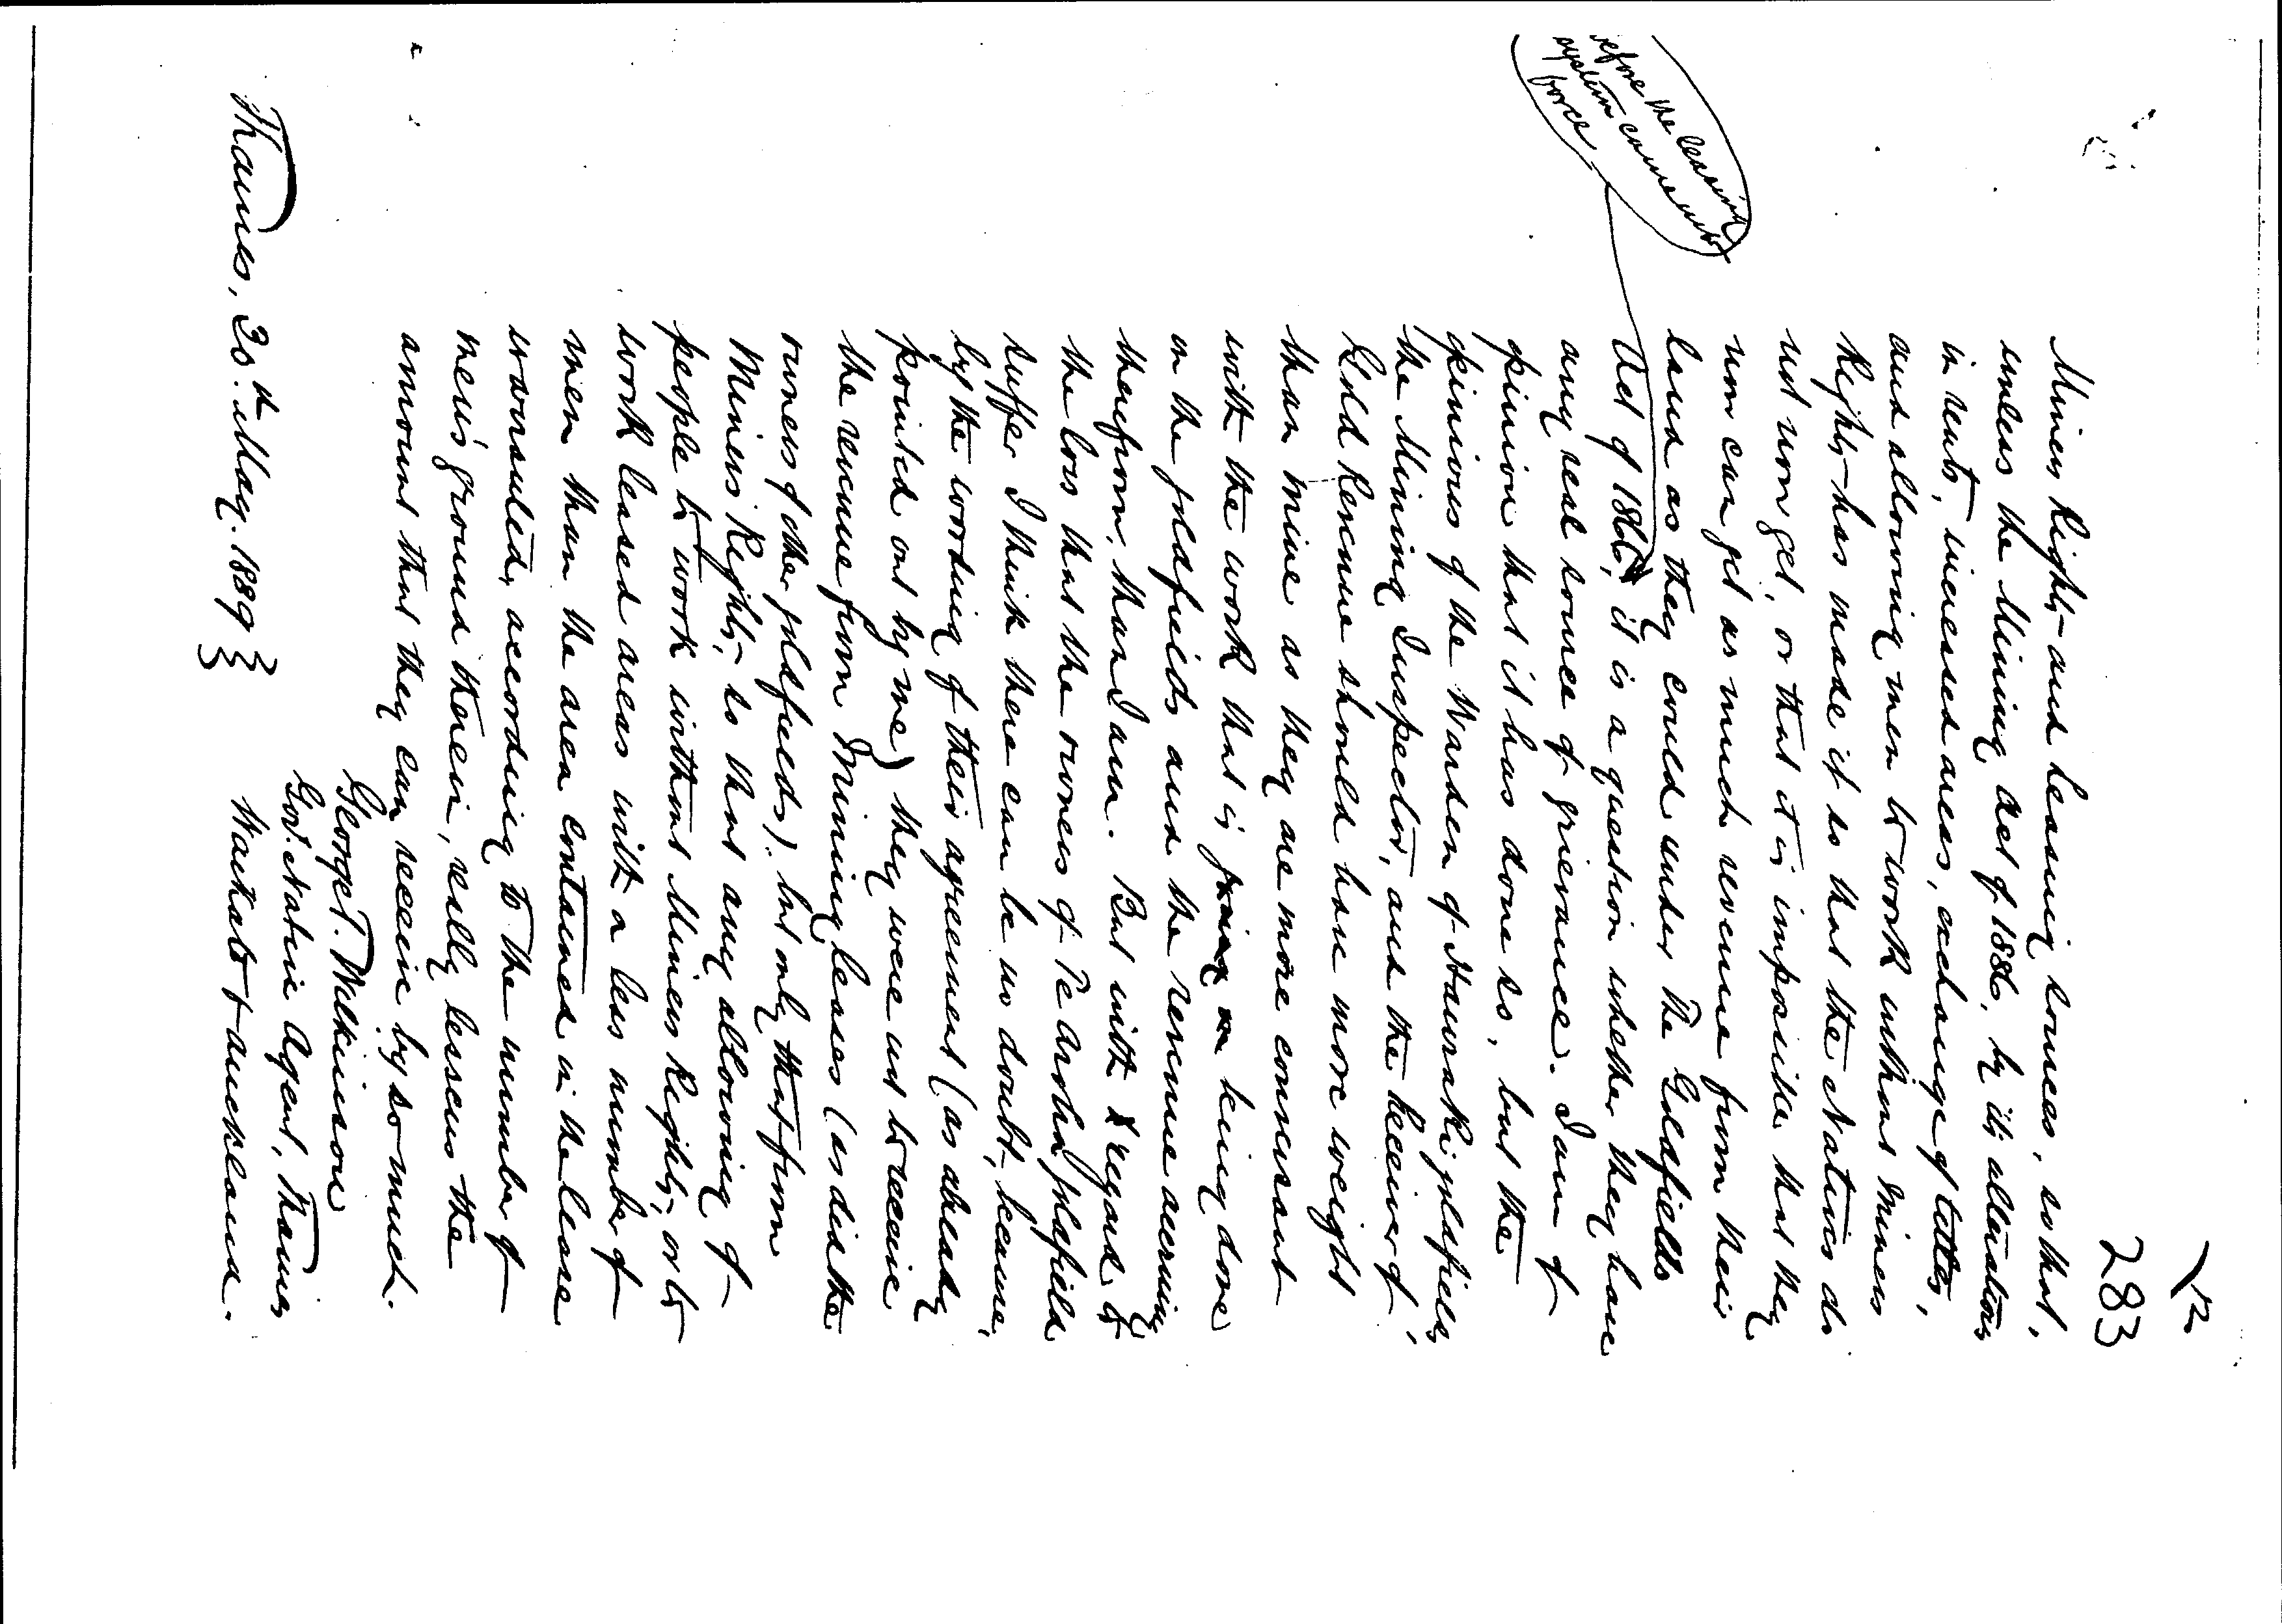 12
283
Miners Rights and Leasing sources, so that,
unless the Mining Act of 1886, by its alterations
in rents, increased areas, exchange of titles,
and allowing men to work without Miners
Rights has made it so that the Natives do
not now get, or that it is impossible that they
now can get as much revenue from their
land as they could under The Goldfields
Act of 1866, it is a question whether they have
before the leasing
system came into
force
any real source of grievance. I am of
opinion that it has done so, but the
opinions of the Warden of Hauraki goldfields,
the Mining Inspector, and the Receiver of
Gold Revenue should have more weight
than mine as they are more conversant
with the work that is going on being done
on the goldfields and the revenue accruing
therefrom, than I am. But with regard to
the loss that the owners of Te Aroha goldfield
suffer I think there can be no doubt, because,
by the wording of their agreement (as already
pointed out by me) they were not to receive
the revenue from Mining leases (as did the
owners of other goldfields), but only that from
Miners Rights, so that any allowing of
people to work without Miners Rights, or to
work leased areas with a less number of
men than the area contained in the lease
warranted, according to the number of
men's ground therein, really lessens the
amount that they can receive by so much.
George T. Wilkinson
Gov. Native Agent, Thames
Waikato & Auckland.
Thames, 30th May. 1889 }